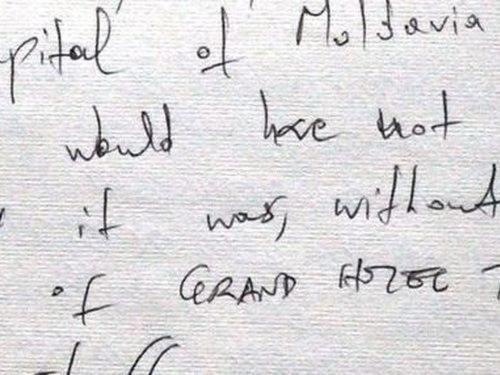 pital of Moldavia
would have not
it was, without
of GRAND HOTEL